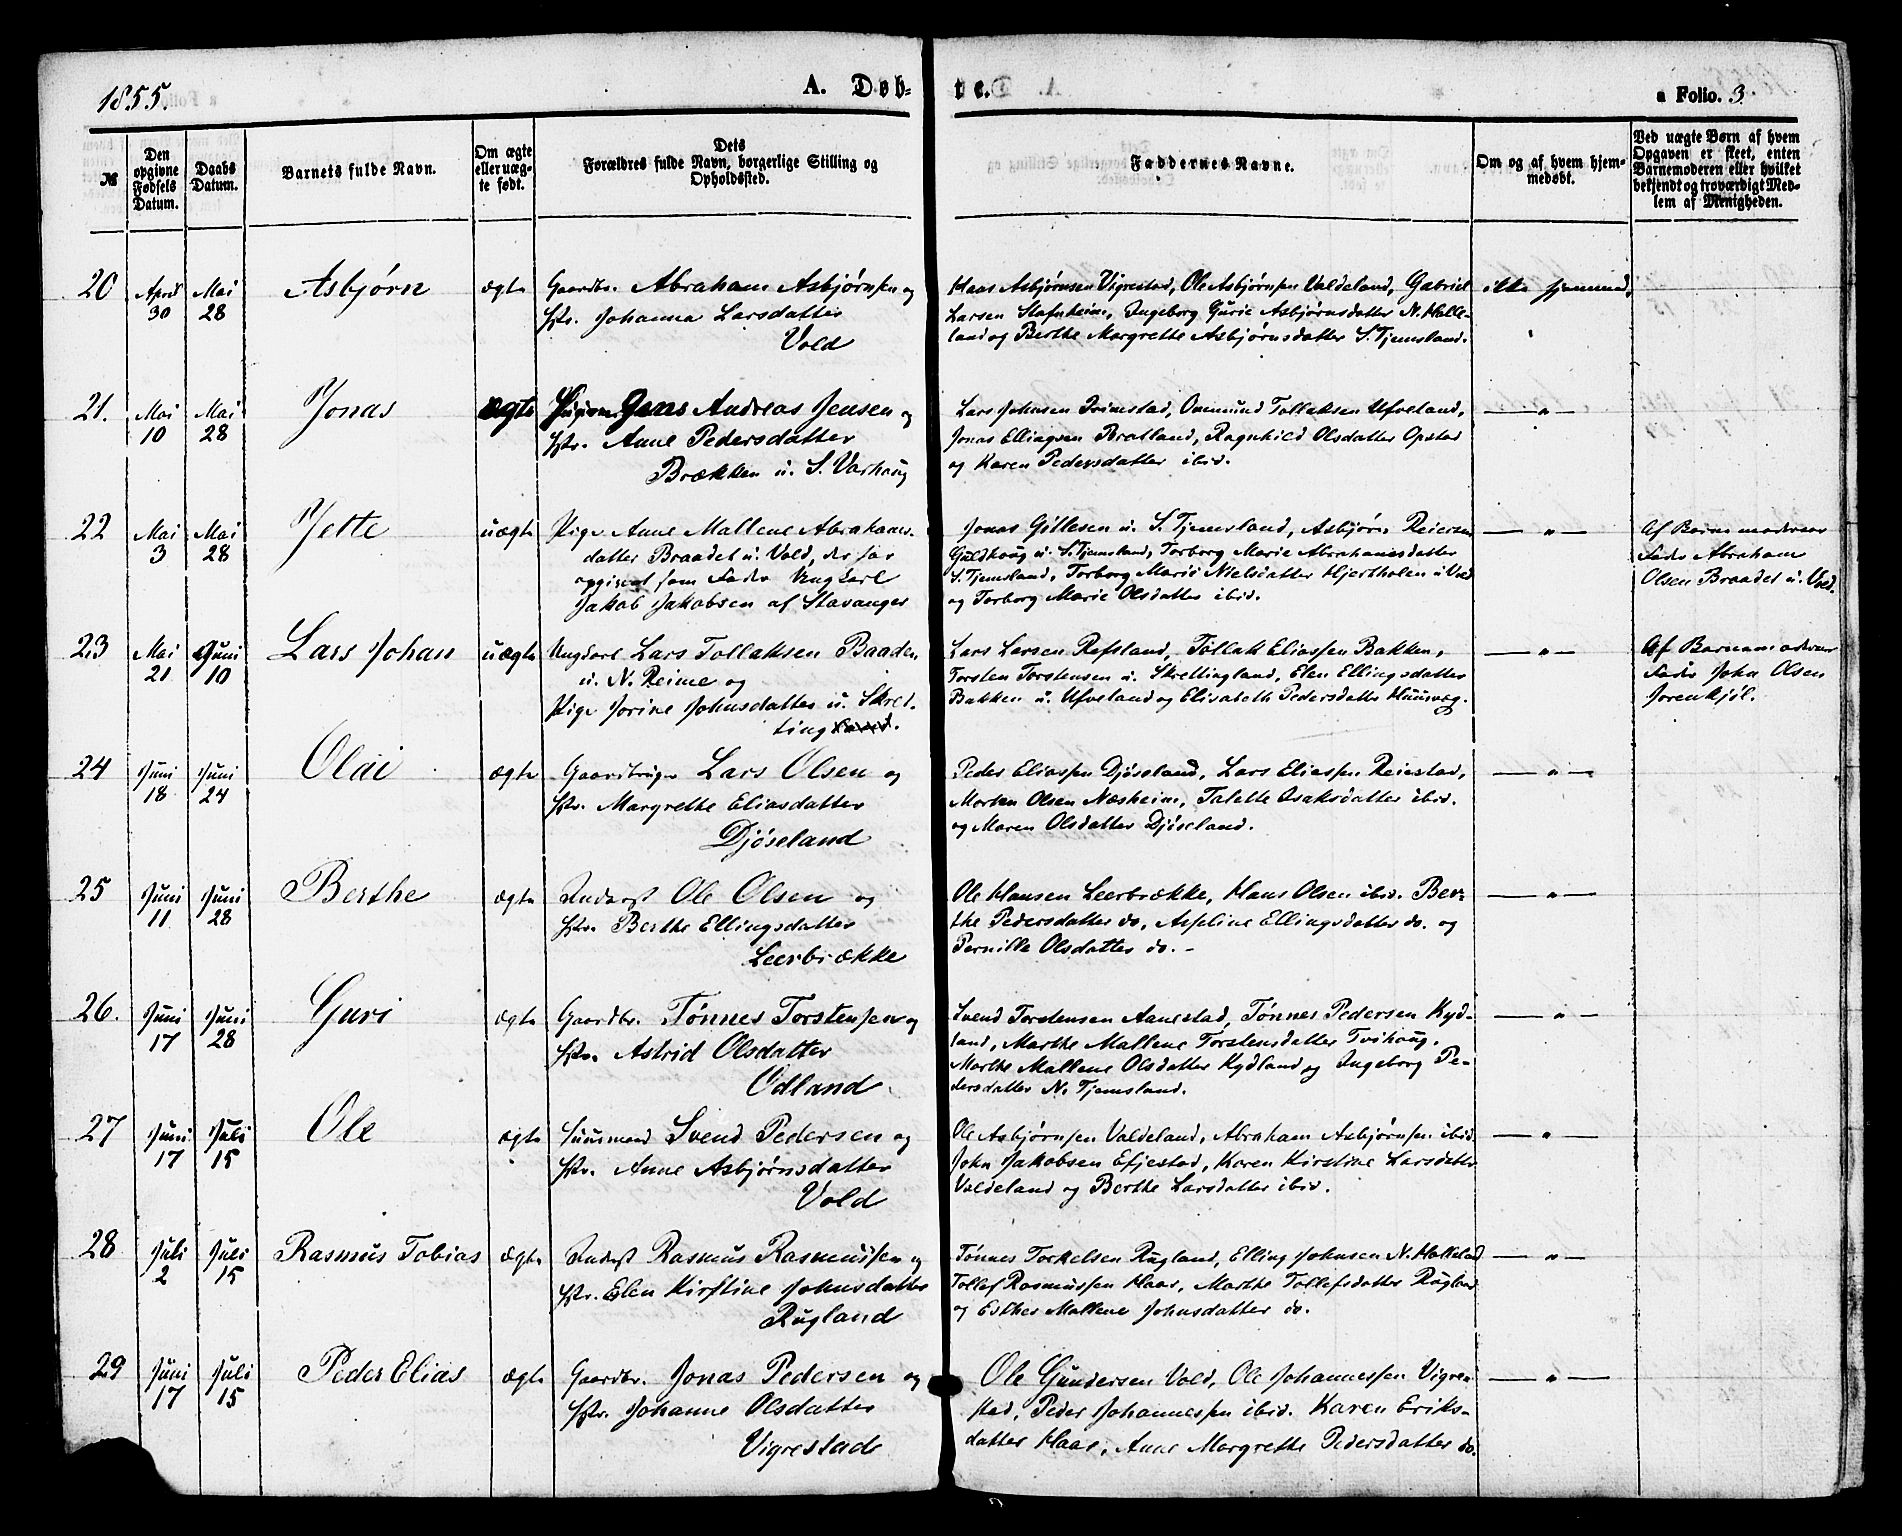 1855.
A. Døb-
te.
a Folio. 3.
№
Den opgivne Fødsels Datum.
Daabs Datum.
Barnets fulde Navn.
Om ægte eller uægte født.
Dets Forældres fulde Navn, borgerlige Stilling og Opholdssted.
Faddernes Navne.
Om og af hvem hjemmedøbt.
Ved uægte Børn af hvem Opgaven er skeet, enten Barnemoderen eller hvilket bekjendt og troværdigt Medlem af Menigheden.
20
April 30
Mai 28
Asbjørn
ægte
Gaardbr. Abraham Asbjørnsen og
Hstr. Johanna Larsdatter
Vold
Klaas Asbjørnsen Vigrestad, Ole Asbjørnsen Valdeland, Gabriel
Larsen Stafnheim, Ingeborg Gurie Asbjørnsdatter N. Hølle-
land og Berthe Margrethe Asbjørnsdatter S. Tjemsland.
ikke hjemmed.
21.
Mai 10
Mai 28
Jonas
ægte
Jens Andreas Jensen og
Hstr. Anne Pedersdatter
Brækken u. S. Varhoug
Lars Johnsen Grimstad, Ommund Tollaksen Ufveland,
Jonas Ellingsen Bratland, Ragnhild Olsdatter Opstad
og Karen Pedersdatter ibid.
— " —
22
Mai 3
Mai 28
Jette
uægte
Pige Anne Mallene Abrahams-
datter Braadet u. Vold, der har
opgivet som Fader Ungkarl
Jakob Jakobsen af Stavanger
Jonas Gitlesen u. S. Tjemsland, Asbjørn Reiersen
Guldhoug u. S. Tjemsland, Torborg Marie Abrahamsdatter
S. Tjemsland, Torborg Marie Nielsdatter Hjertholen u. Vold
og Torborg Marie Olsdatter ibid.
— " —
Af Barnemoderens
Fader Abraham
Olsen Braadet u. Vold.
23
Mai 21
Juni 10
Lars Johan
uægte
Ungkarl Lars Tollaksen Baaden
u. N. Reime og
Pige Jorine Johnsdatter u. Skret-
tingland.
Lars Larsen Refsland, Tollak Eliassen Bakken,
Torsten Torstensen u. Skrettingland, Elen Ellingsdatter
Bakken u. Ufveland og Elisabeth Pedersdatter
— " —
Af Barnemoderens
Fader John Olsen
24
Juni 18
Juni 24
Olai
ægte
Gaardbruger Lars Olsen og
Hstr. Margrethe Eliasdatter
Djøseland
Peder Eliassen Djøseland, Lars Eliassen Reiestad,
Morten Olsen Næsheim, Talette Isaksdatter ibid.
og Maren Olsdatter Djøseland.
— " —
25
Juni 11
Juni 28
Berthe
ægte
Inderst Ole Olsen og
Hstr. Berthe Ellingsdatter
Leerbrække
Ole Hansen Leerbrække, Hans Olsen ibid. Ber-
the Pedersdatter do, Asseline Ellingsdatter do. og
Pernille Olsdatter do. -
— " —
26.
Juni 17
Juni 28
Guri
ægte
Gaardbr. Tønnes Torstensen og
Hstr. Astrid Olsdatter
Odland
Svend Torstensen Aanestad, Tønnes Pedersen Kyd-
land, Marthe Mallene Torstensdatter Tvihoug,
Marthe Mallene Olsdatter Kydland og Ingeborg Pe-
dersdatter N. Tjemsland.
— " —
27
Juni 17
Juli 15
Ole
ægte
Huusmand Svend Pedersen og
Hstr. Anne Asbjørnsdatter
Vold
Ole Asbjørnsen Valdeland, Abraham Asbjørnsen ibid.
John Jakobsen Efjestad, Karen Kirstine Larsdatter
Valdeland og Berthe Larsdatter ibid.
— " —
28
Juli 2
Juli 15
Rasmus Tobias
ægte
Inderst Rasmus Rasmussen og
Hstr. Elen Kirstine Johnsdatter
Rugland
Tønnes Torkelsen Rugland, Elling Johnsen N. Hølleland
Tollef Rasmussen Haar, Marthe Tollefsdatter Rugland
og Esther Mallene Johnsdatter do.
— " —
29
Juni 17
Juli 15
Peder Elias
ægte
Gaardbr. Jonas Pedersen og
Hstr. Johanne Olsdatter
Vigrestad
Ole Gundersen Vold, Ole Johannessen Vigre-
stad, Peder Johannessen ibid. Karen Eriks-
datter Haar, Anne Margrethe Pedersdatter do.
— " —